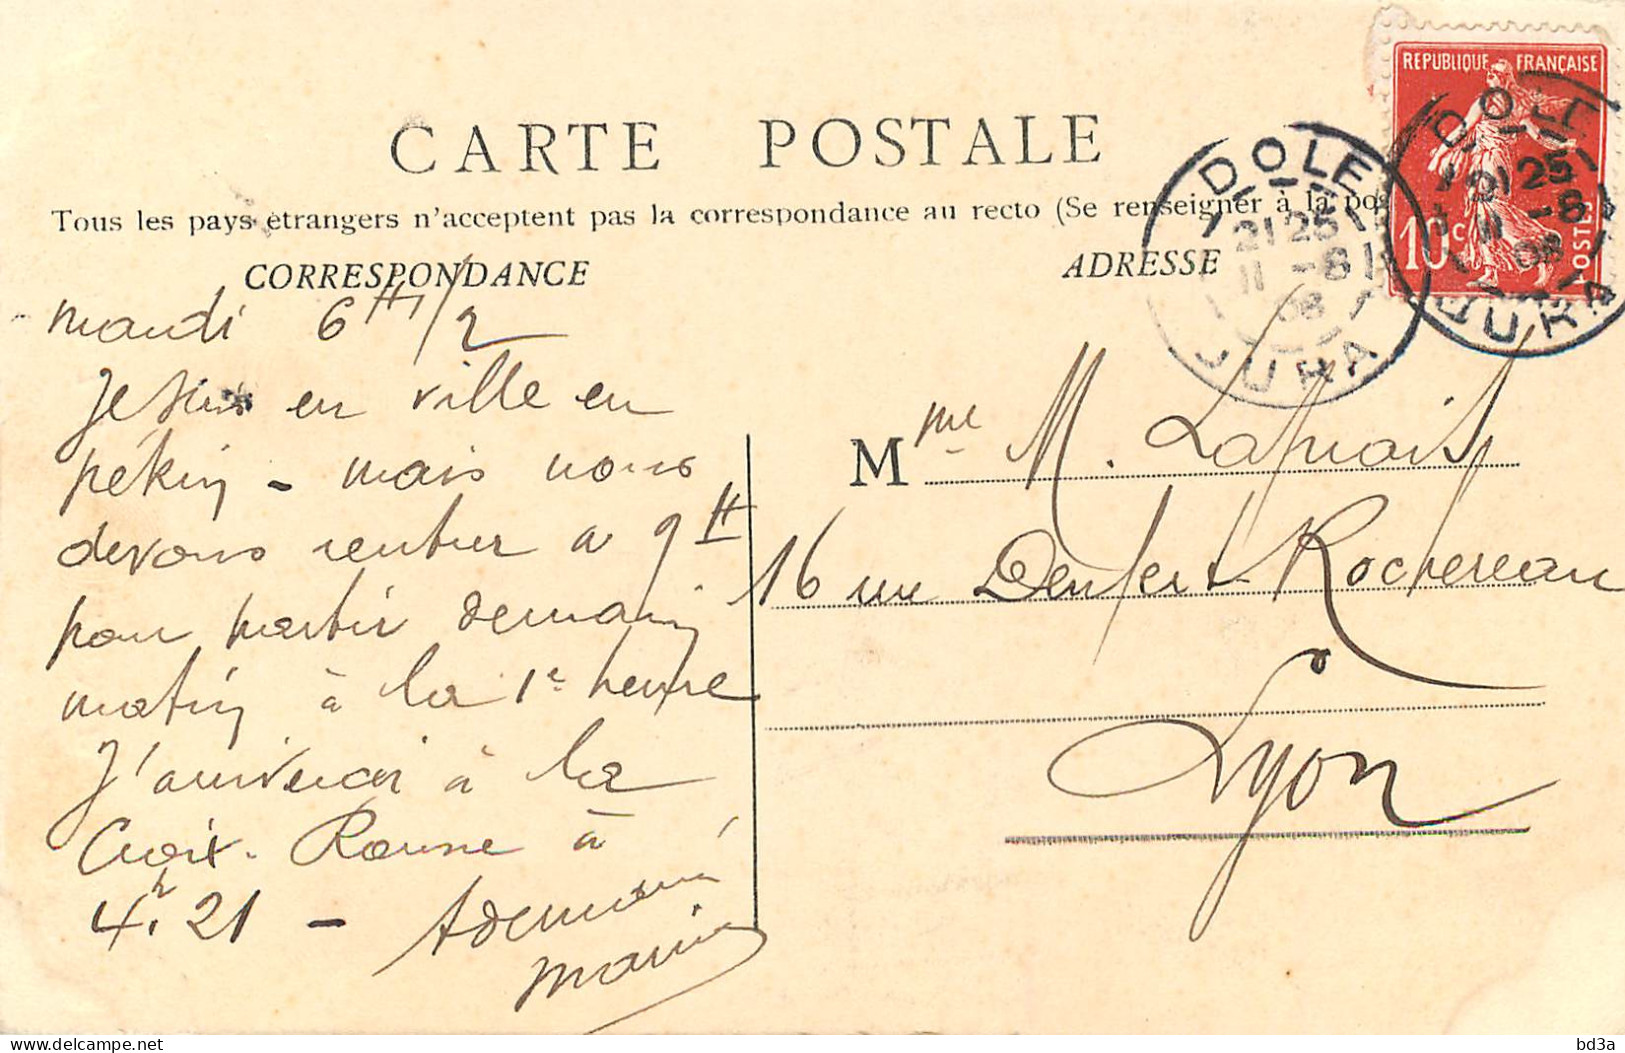 CARTE POSTALE
Tous les pays étrangers n'acceptent pas la correspondance au recto (Se renseigner à la pos
CORRESPONDANCE
ADRESSE
REPUBLIQUE FRANÇAISE
10c
POSTES
DOLE
21 25
11 -8
08
JURA
DOLE
21 25
11 -8
08
JURA
mardi 6 H 1/2
Je suis en ville en
pékin - mais nous
devons rentrer a 9 H
pour partir demain
matin à la 1e heure
J'arriverai à la
Croix-Rousse à
4h 21 - A demain
Marius
Mme M.
16 rue Denfert Rochereau
Lyon
delcampe.net
bd3a